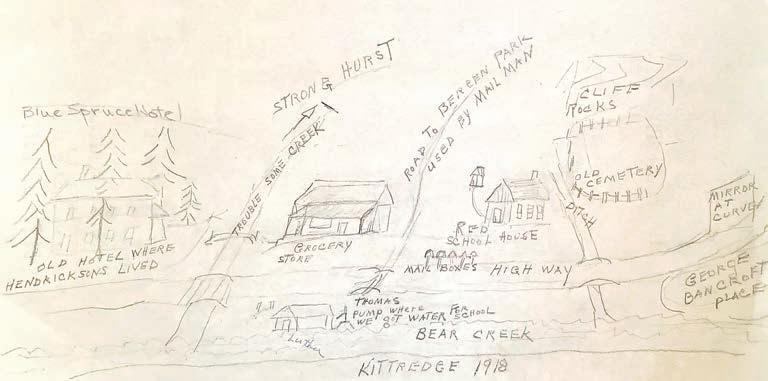 STRONG HURST
Blue Spruce Hotel
TROUBLE SOME CREEK
ROAD TO BERGEN PARK
USED BY MAIL MAN
CLIFF
ROCKS
OLD
CEMETERY
DITCH
MIRROR
AT
CURVE
OLD HOTEL WHERE
HENDRICKSONS LIVED
GROCERY
STORE
RED
SCHOOL HOUSE
MAIL BOXES
HIGH WAY
GEORGE
BANCROFT
PLACE
THOMAS
PUMP WHERE
WE GOT WATER FOR SCHOOL
Luther
BEAR CREEK
KITTREDGE 1918